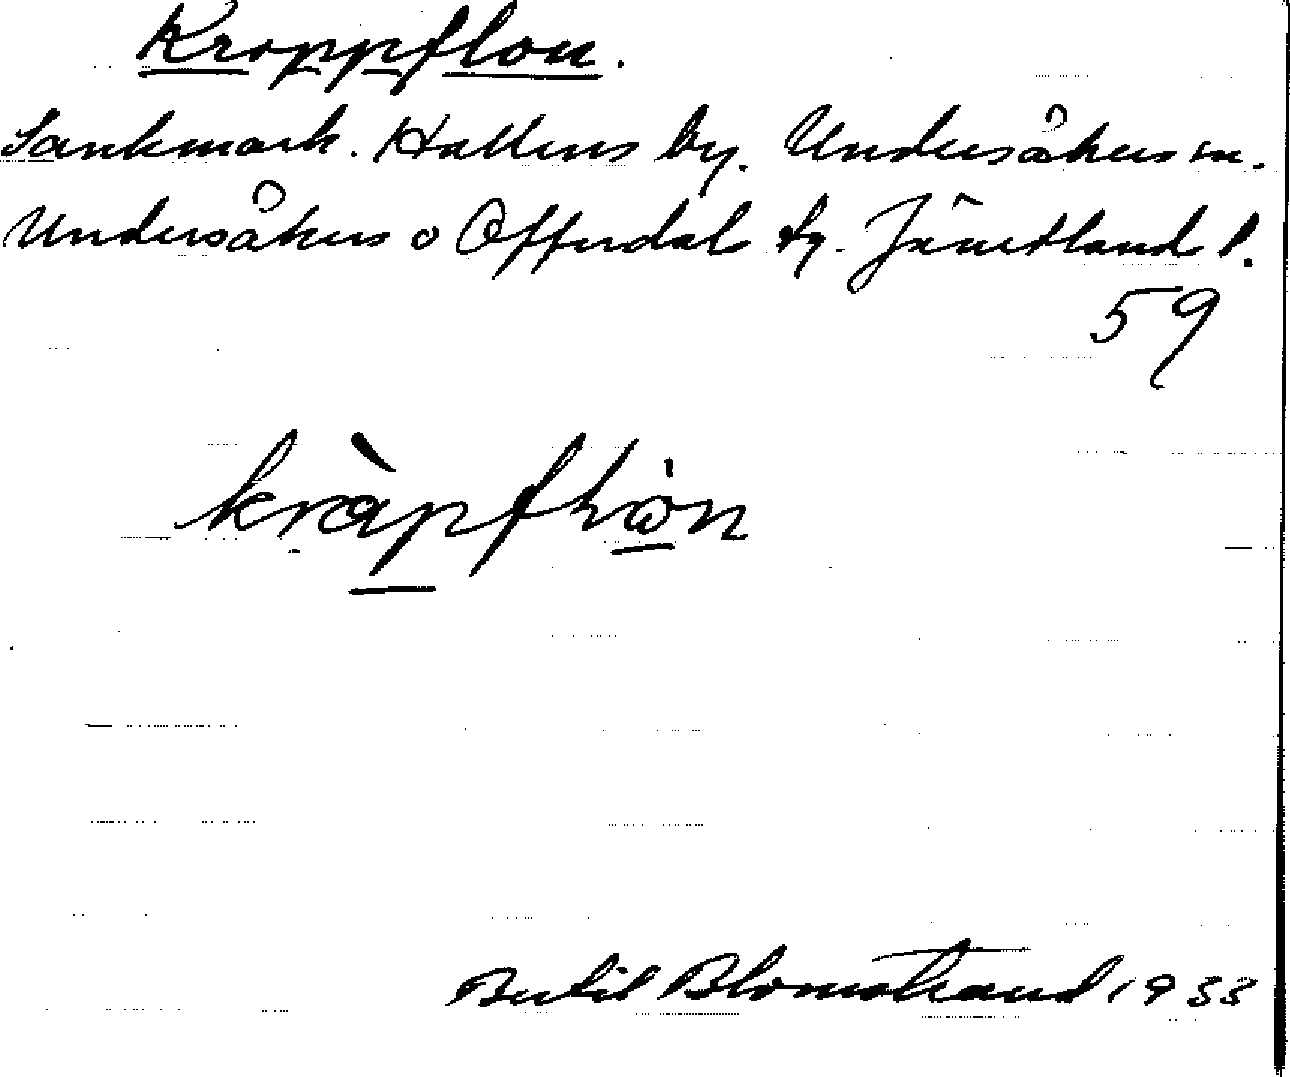 Kroppflon.
Sankmark. Hallens by. Undersåkers sn.
Undersåkers o Offerdal tg. Jämtland l.
59
kràpflɷ̇n
Bertil Blomstrand 1933